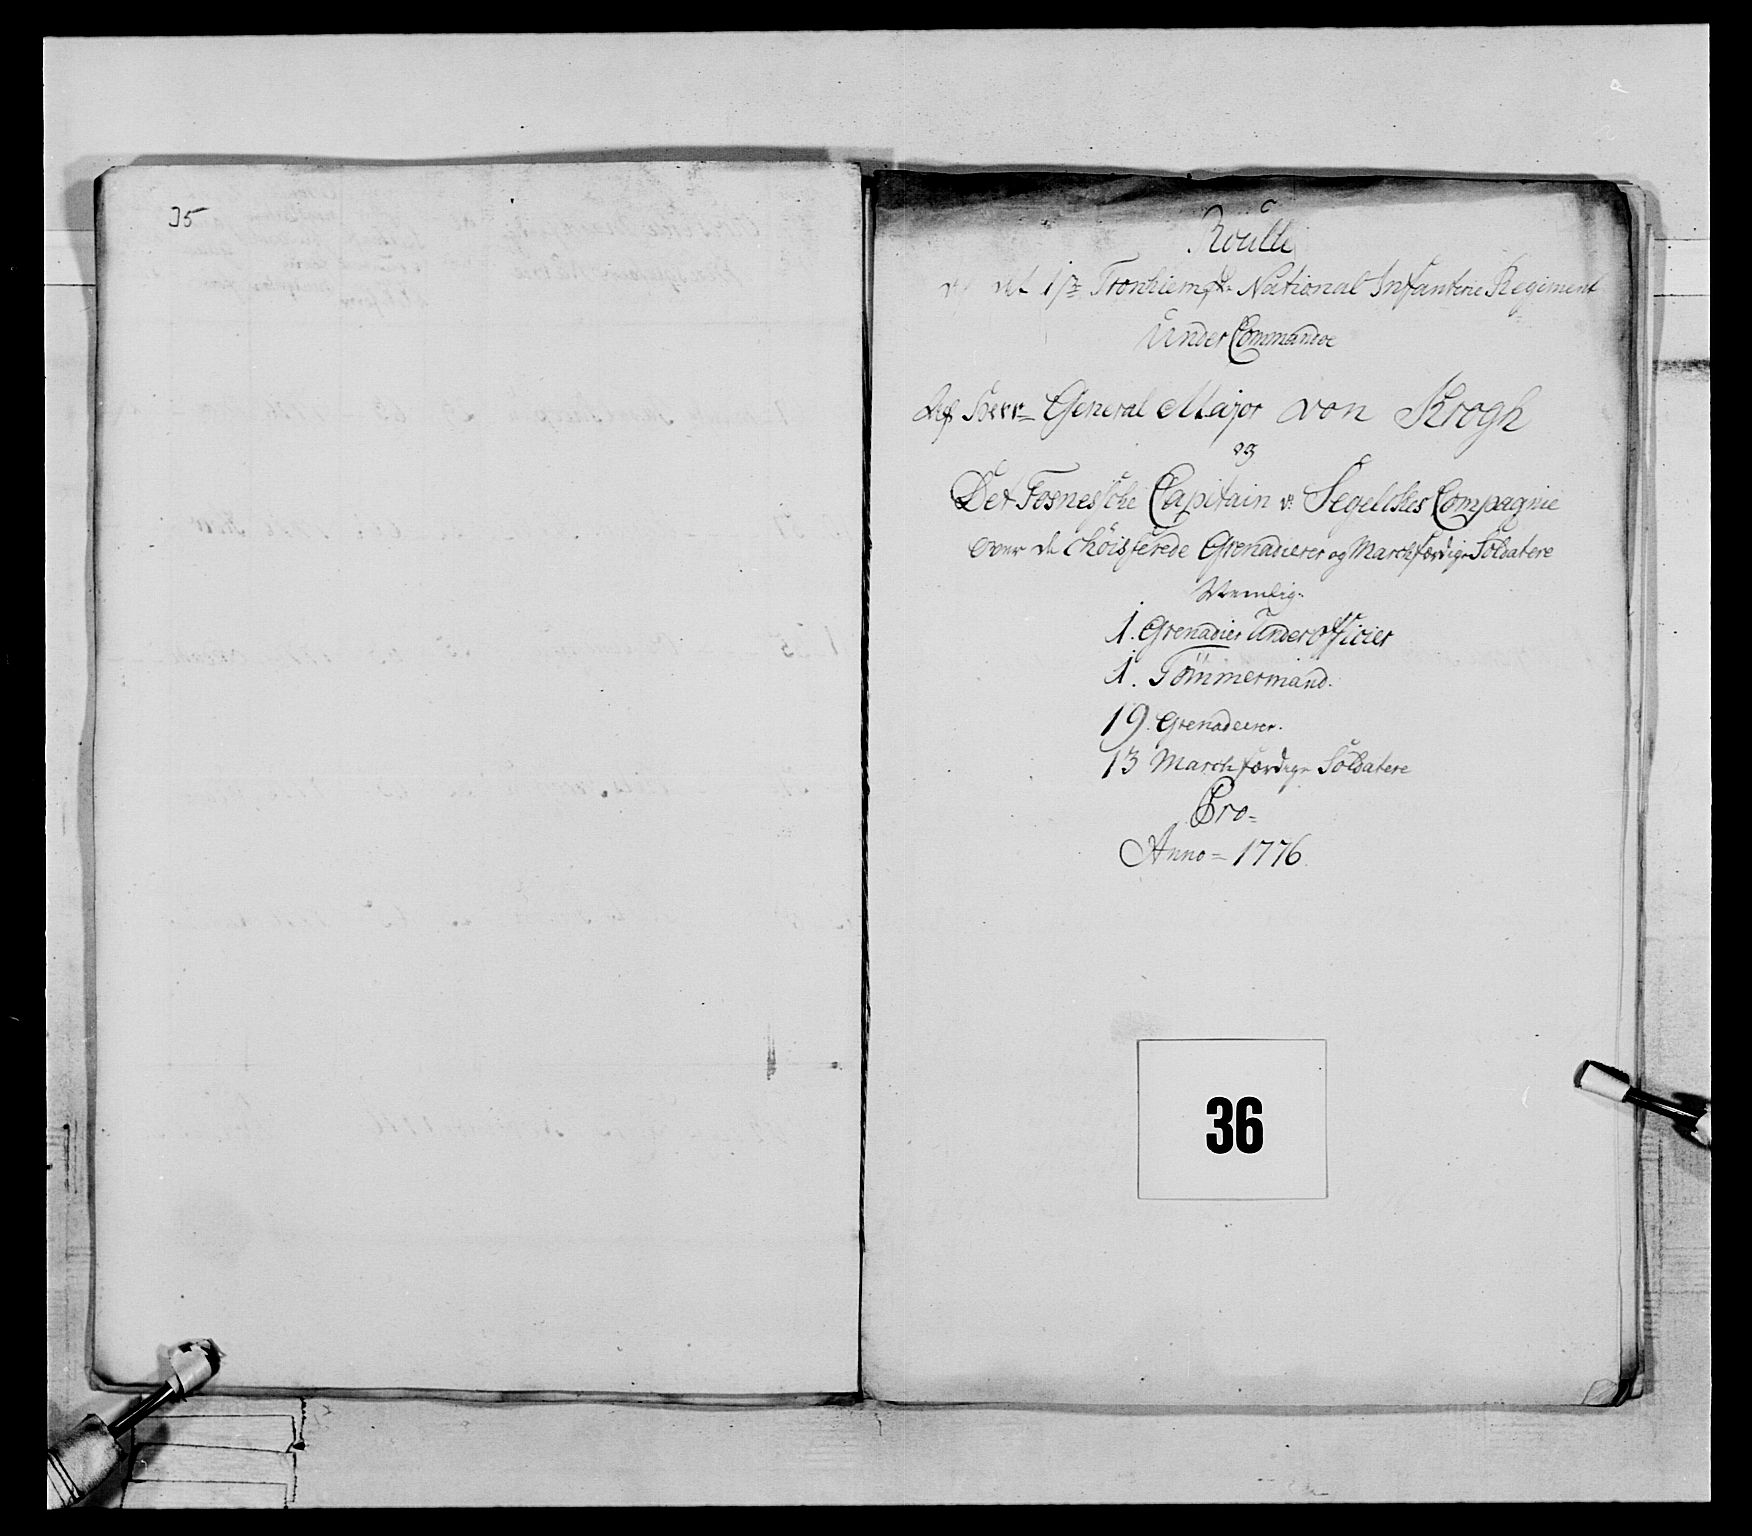 35
Roulle
det 1ste Tronhiemske National Infanterie Regiment
Under Commando
Herr General Major von Krogh
og
Det Fosnesche Capitain v: Segelckes Compagnie
over de choisferede Grenaderer og Marchfærdige Soldatere
Nemlig
1. Grenadier Under Officier
1. Tömmermand.
19. Grenaderer.
13 Marchfærdige Soldatere
Pro
Anno = 1776
36